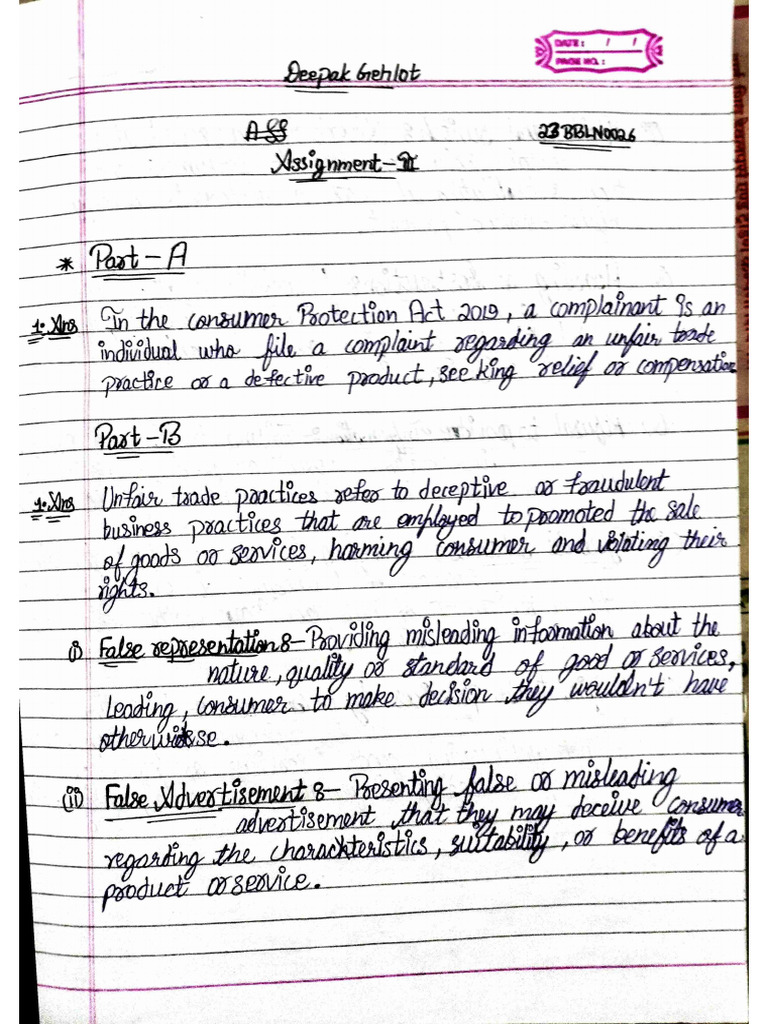 DATE: / /
PAGE NO.:
Deepak Gehlot
Ass
23BBLN0026
Assignment-II
* Part-A
1. Ans In the consumer Protection Act 2019, a complainant is an
individual who file a complaint regarding an unfair trade
practice or a defective product, seeking relief or compensation
Part-B
1. Ans Unfair trade practices refer to deceptive or fraudulent
business practices that are employed to promoted the sale
of goods or services, harming consumer and violating their
rights.
(i) False representation :- Providing misleading information about the
nature, quality or standard of good or services,
leading, consumer to make decision they wouldn't have
otherwise.
(ii) False Advertisement :- Presenting false or misleading
advertisement, that they may deceive consumer
regarding the charachteristics, suitability, or benefits of a
product or service.